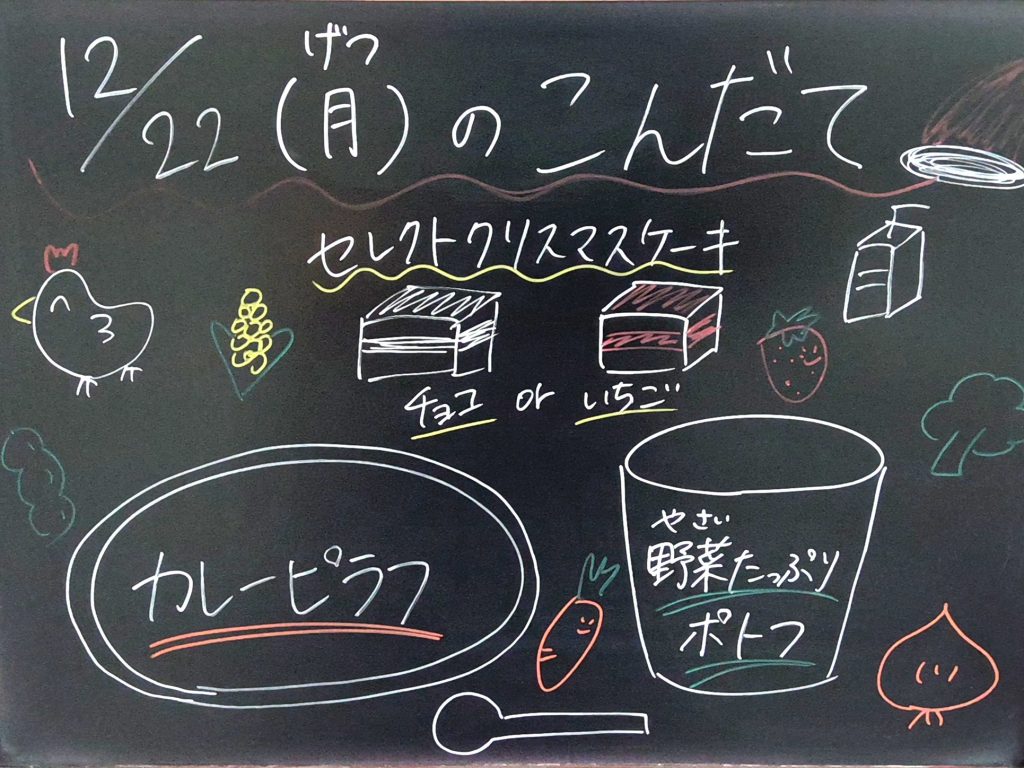 げつ
12/22(月)のこんだて
セレクトクリスマスケーキ
チョコ or いちご
カレーピラフ
やさい
野菜たっぷり
ポトフ